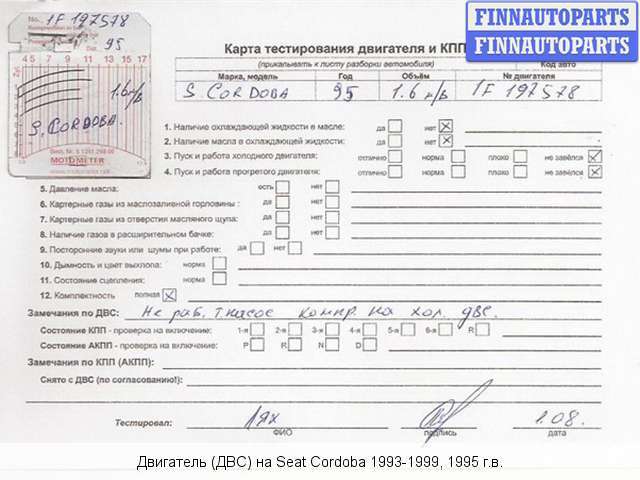 No. 1F 197578
Dat. 95
4 5 7 9 11 13 15 17
1.6 м/в
S. CORDOBA.
MOTOMETER
FINNAUTOPARTS
FINNAUTOPARTS
Карта тестирования двигателя и КПП
(прикалывать к листу разборки автомобиля)
Код авто
Марка, модель Год Объём № двигателя
S. CORDOBA 95 1.6 м/в 1F 197578
1. Наличие охлаждающей жидкости в масле: да нет
2. Наличие масла в охлаждающей жидкости: да нет
3. Пуск и работа холодного двигателя: отлично норма плохо не завёлся
4. Пуск и работа прогретого двигателя: отлично норма плохо не завёлся
5. Давление масла: есть нет
6. Картерные газы из маслозаливной горловины : да нет
7. Картерные газы из отверстия масляного щупа: да нет
8. Наличие газов в расширительном бачке: да нет
9. Посторонние звуки или шумы при работе: да нет
10. Дымность и цвет выхлопа: норма
11. Состояние сцепления: норма
12. Комплектность полная
Замечания по ДВС: Не раб. т.насос компр. на хол. две.
Состояние КПП - проверка на включение: 1-я 2-я 3-я 4-я 5-я 6-я R
Состояние АКПП - проверка на включение: P R N D
Замечания по КПП (АКПП):
Снято с ДВС (по согласованию!):
Тестировал: Лях 1.08.
ФИО подпись дата
Двигатель (ДВС) на Seat Cordoba 1993-1999, 1995 г.в.